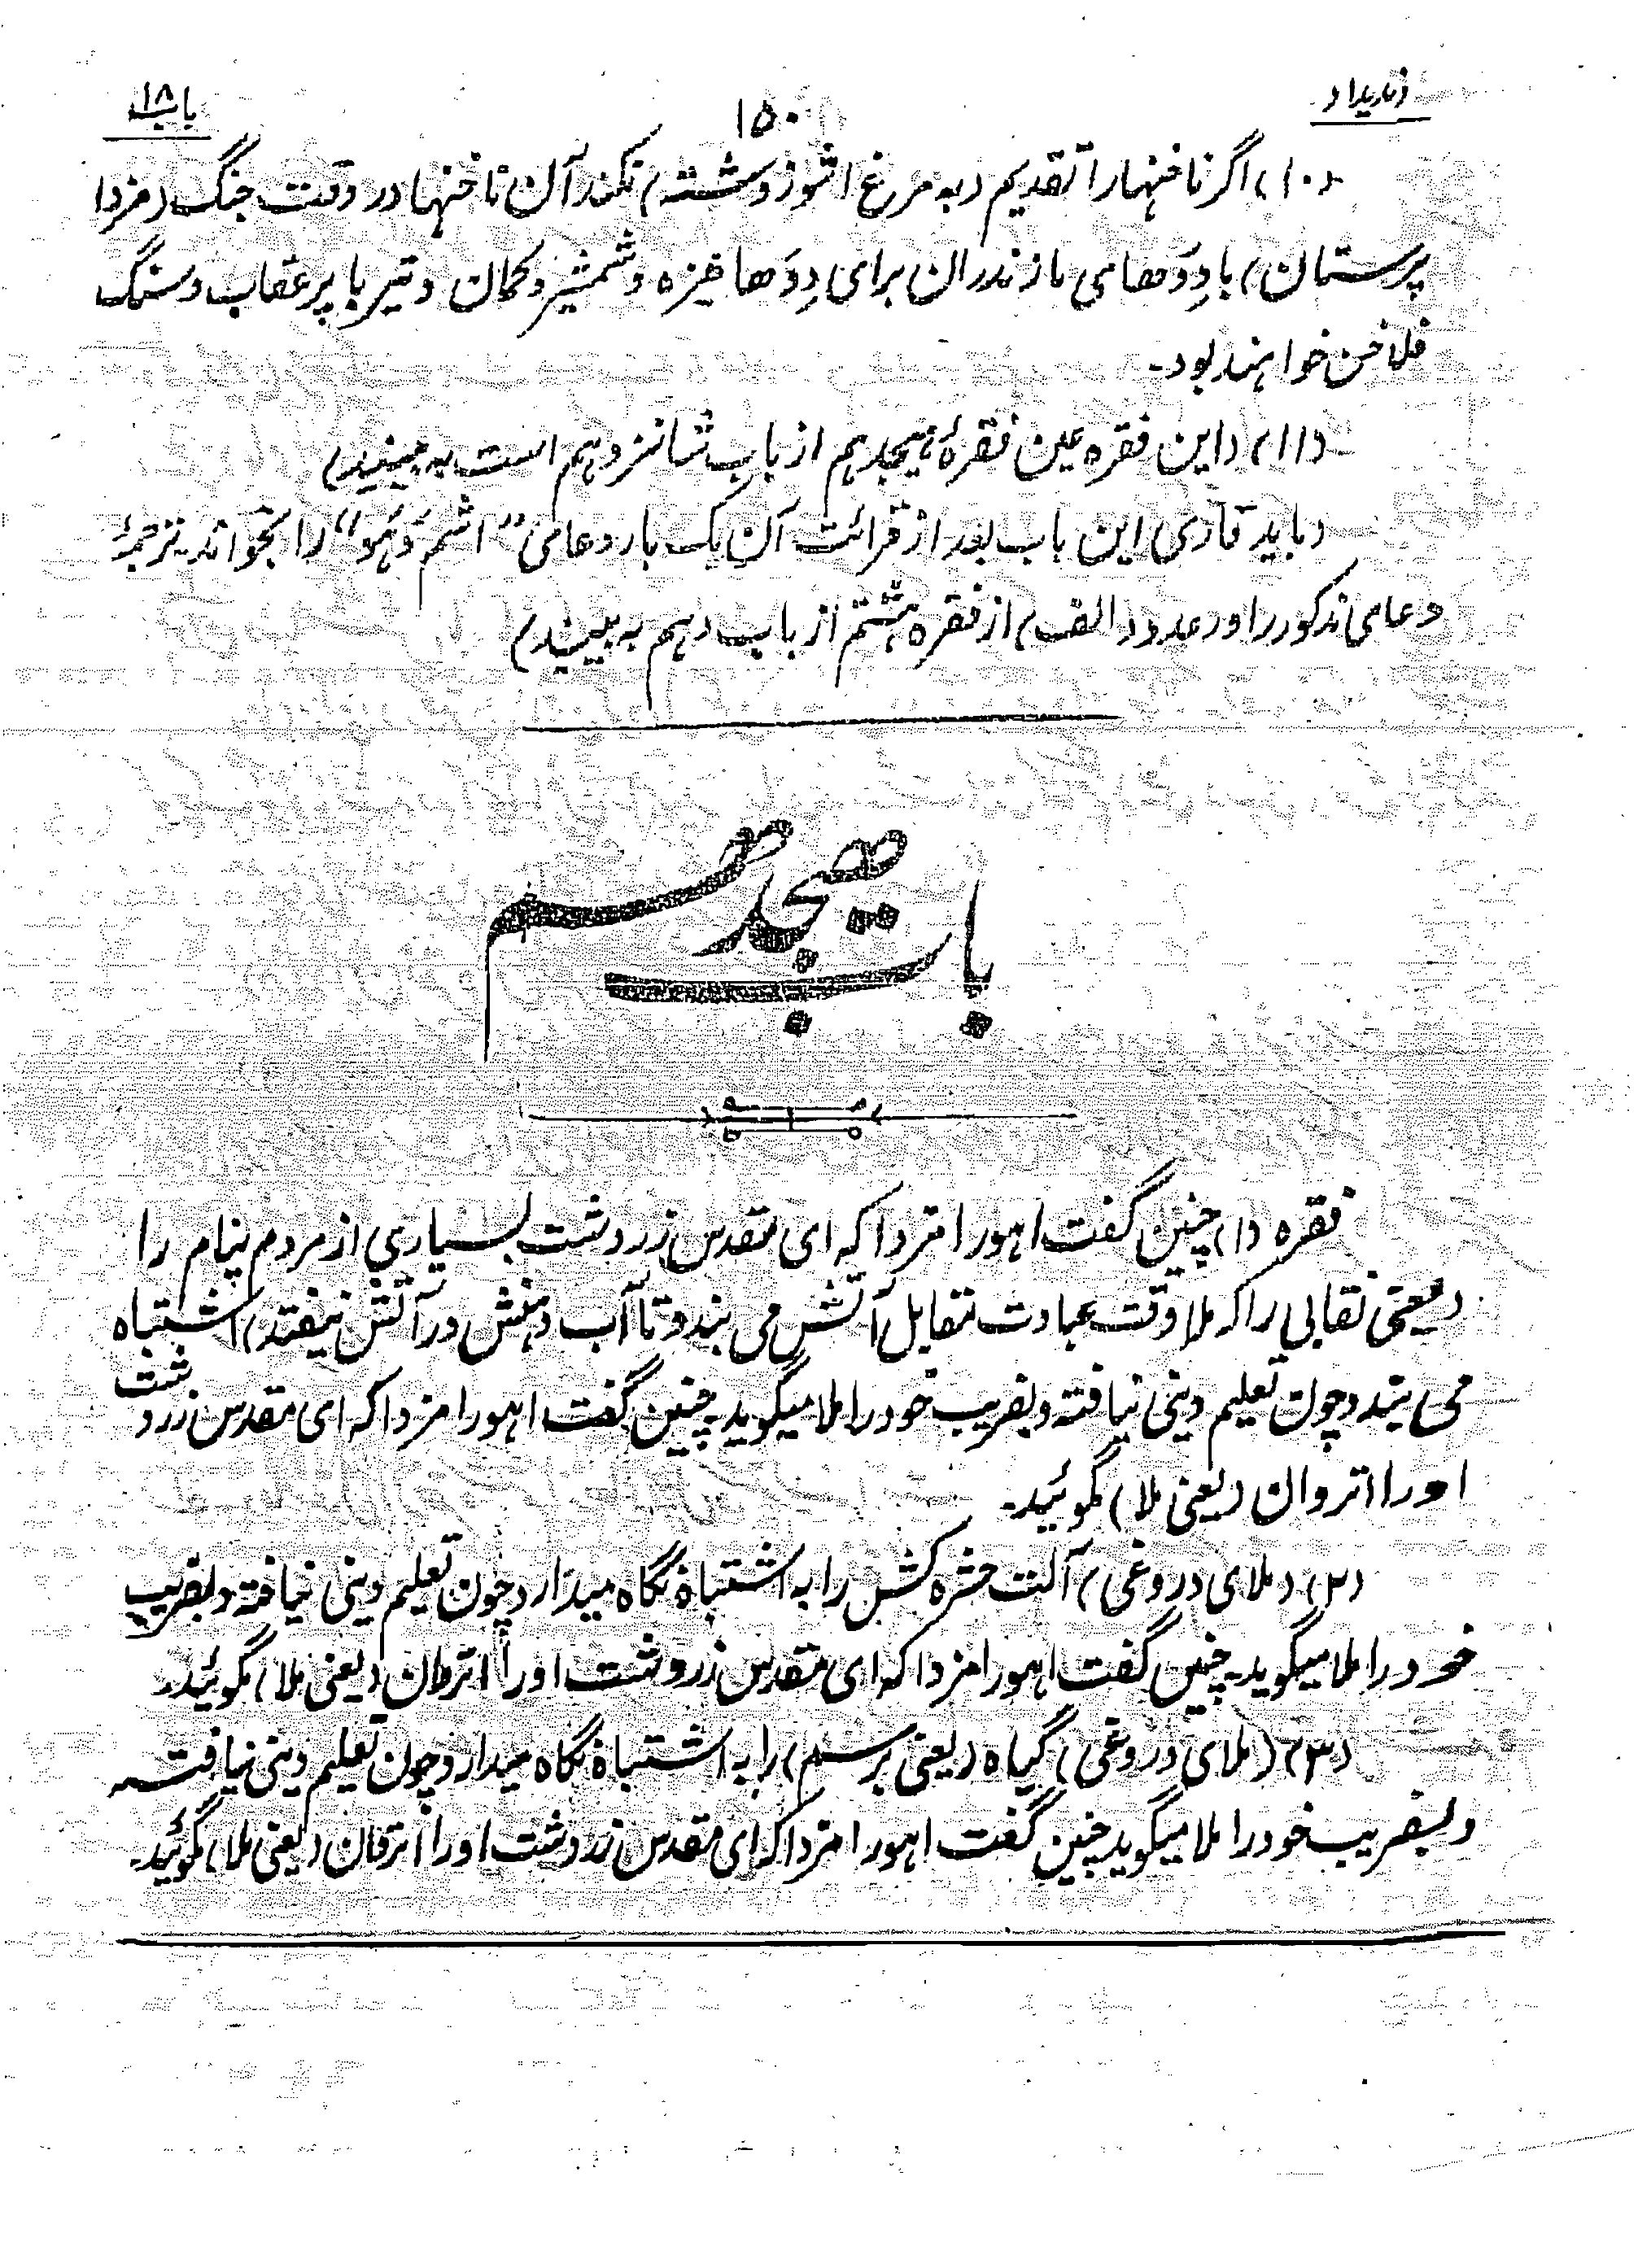 وندیداد
۱۵۰
باب ۱۸
(۱۰) اگر ناخنها را تقدیم (به مرغ اشوزوشته) نکند آن ناخنها در وقت جنگ (مزدا
پرستان) با دِوَهای مازندران برای دِوَها نیزه و شمشیر و کمان و تیر با پر عقاب و سنگ
فلاخن خواهند بود۔
(۱۱) (این فقره عین فقرهٔ هیجدهم از باب شانزدهم است به بینید)
(باید قاری این باب بعد از قرائت آن یک بار دعای “اشم وُهو” را بخواند ترجمهٔ
دعای مذکور را در عدود الف) از فقره هشتم از باب دهم به بینید)
باب هیجدهم
فقره (۱) چنین گفت اهورا مزدا که ای مقدس زردشت بسیاری از مردم پنام را
(یعنی نقابی را که ملا وقت عبادت مقابل آتش می بندد تا آب دهنش در آتش نیفتد) اشتباه
می بندد چون تعلیم دینی نیافته و بفریب خود را ملا میگوید چنین گفت اهورا مزدا که ای مقدس زردشت
او را اتروان (یعنی ملا) نگوئید۔
(۲) (ملای دروغی) آلت حشره کش را به اشتباه نگاه میدارد چون تعلیم دینی نیافته و بفریب
خود را ملا میگوید۔ چنین گفت اهورا مزدا که ای مقدس زردشت او را اتروان (یعنی ملا) نگوئید۔
(۳) (ملای دروغی) گیاه (یعنی برسم) را به اشتباه نگاه میدارد چون تعلیم دینی نیافته
و بفریب خود را ملا میگوید چنین گفت اهورا مزدا که ای مقدس زردشت او را اترفان (یعنی ملا) نگوئید۔